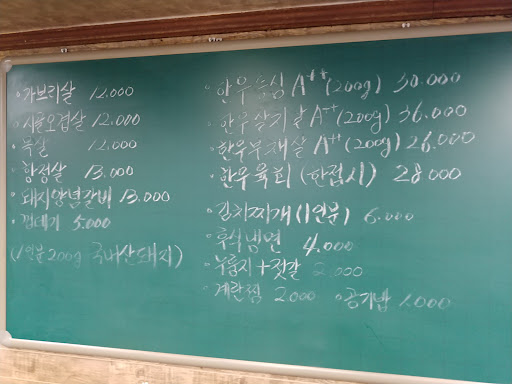 • 가브리살 12.000
• 시골오겹살 12.000
• 목살 12.000
• 항정살 13.000
• 돼지양념갈비 13.000
• 껍데기 5.000
(1인분 200g 국내산돼지)
• 한우등심 A++ (200g) 30.000
• 한우살치살 A++ (200g) 36.000
• 한우부채살 A++ (200g) 26.000
• 한우육회 (한접시) 28000
• 김치찌개 (1인분) 6.000
• 후식냉면 4.000
• 누룽지+젓갈 2.000
• 계란찜 2000 • 공기밥 1.000